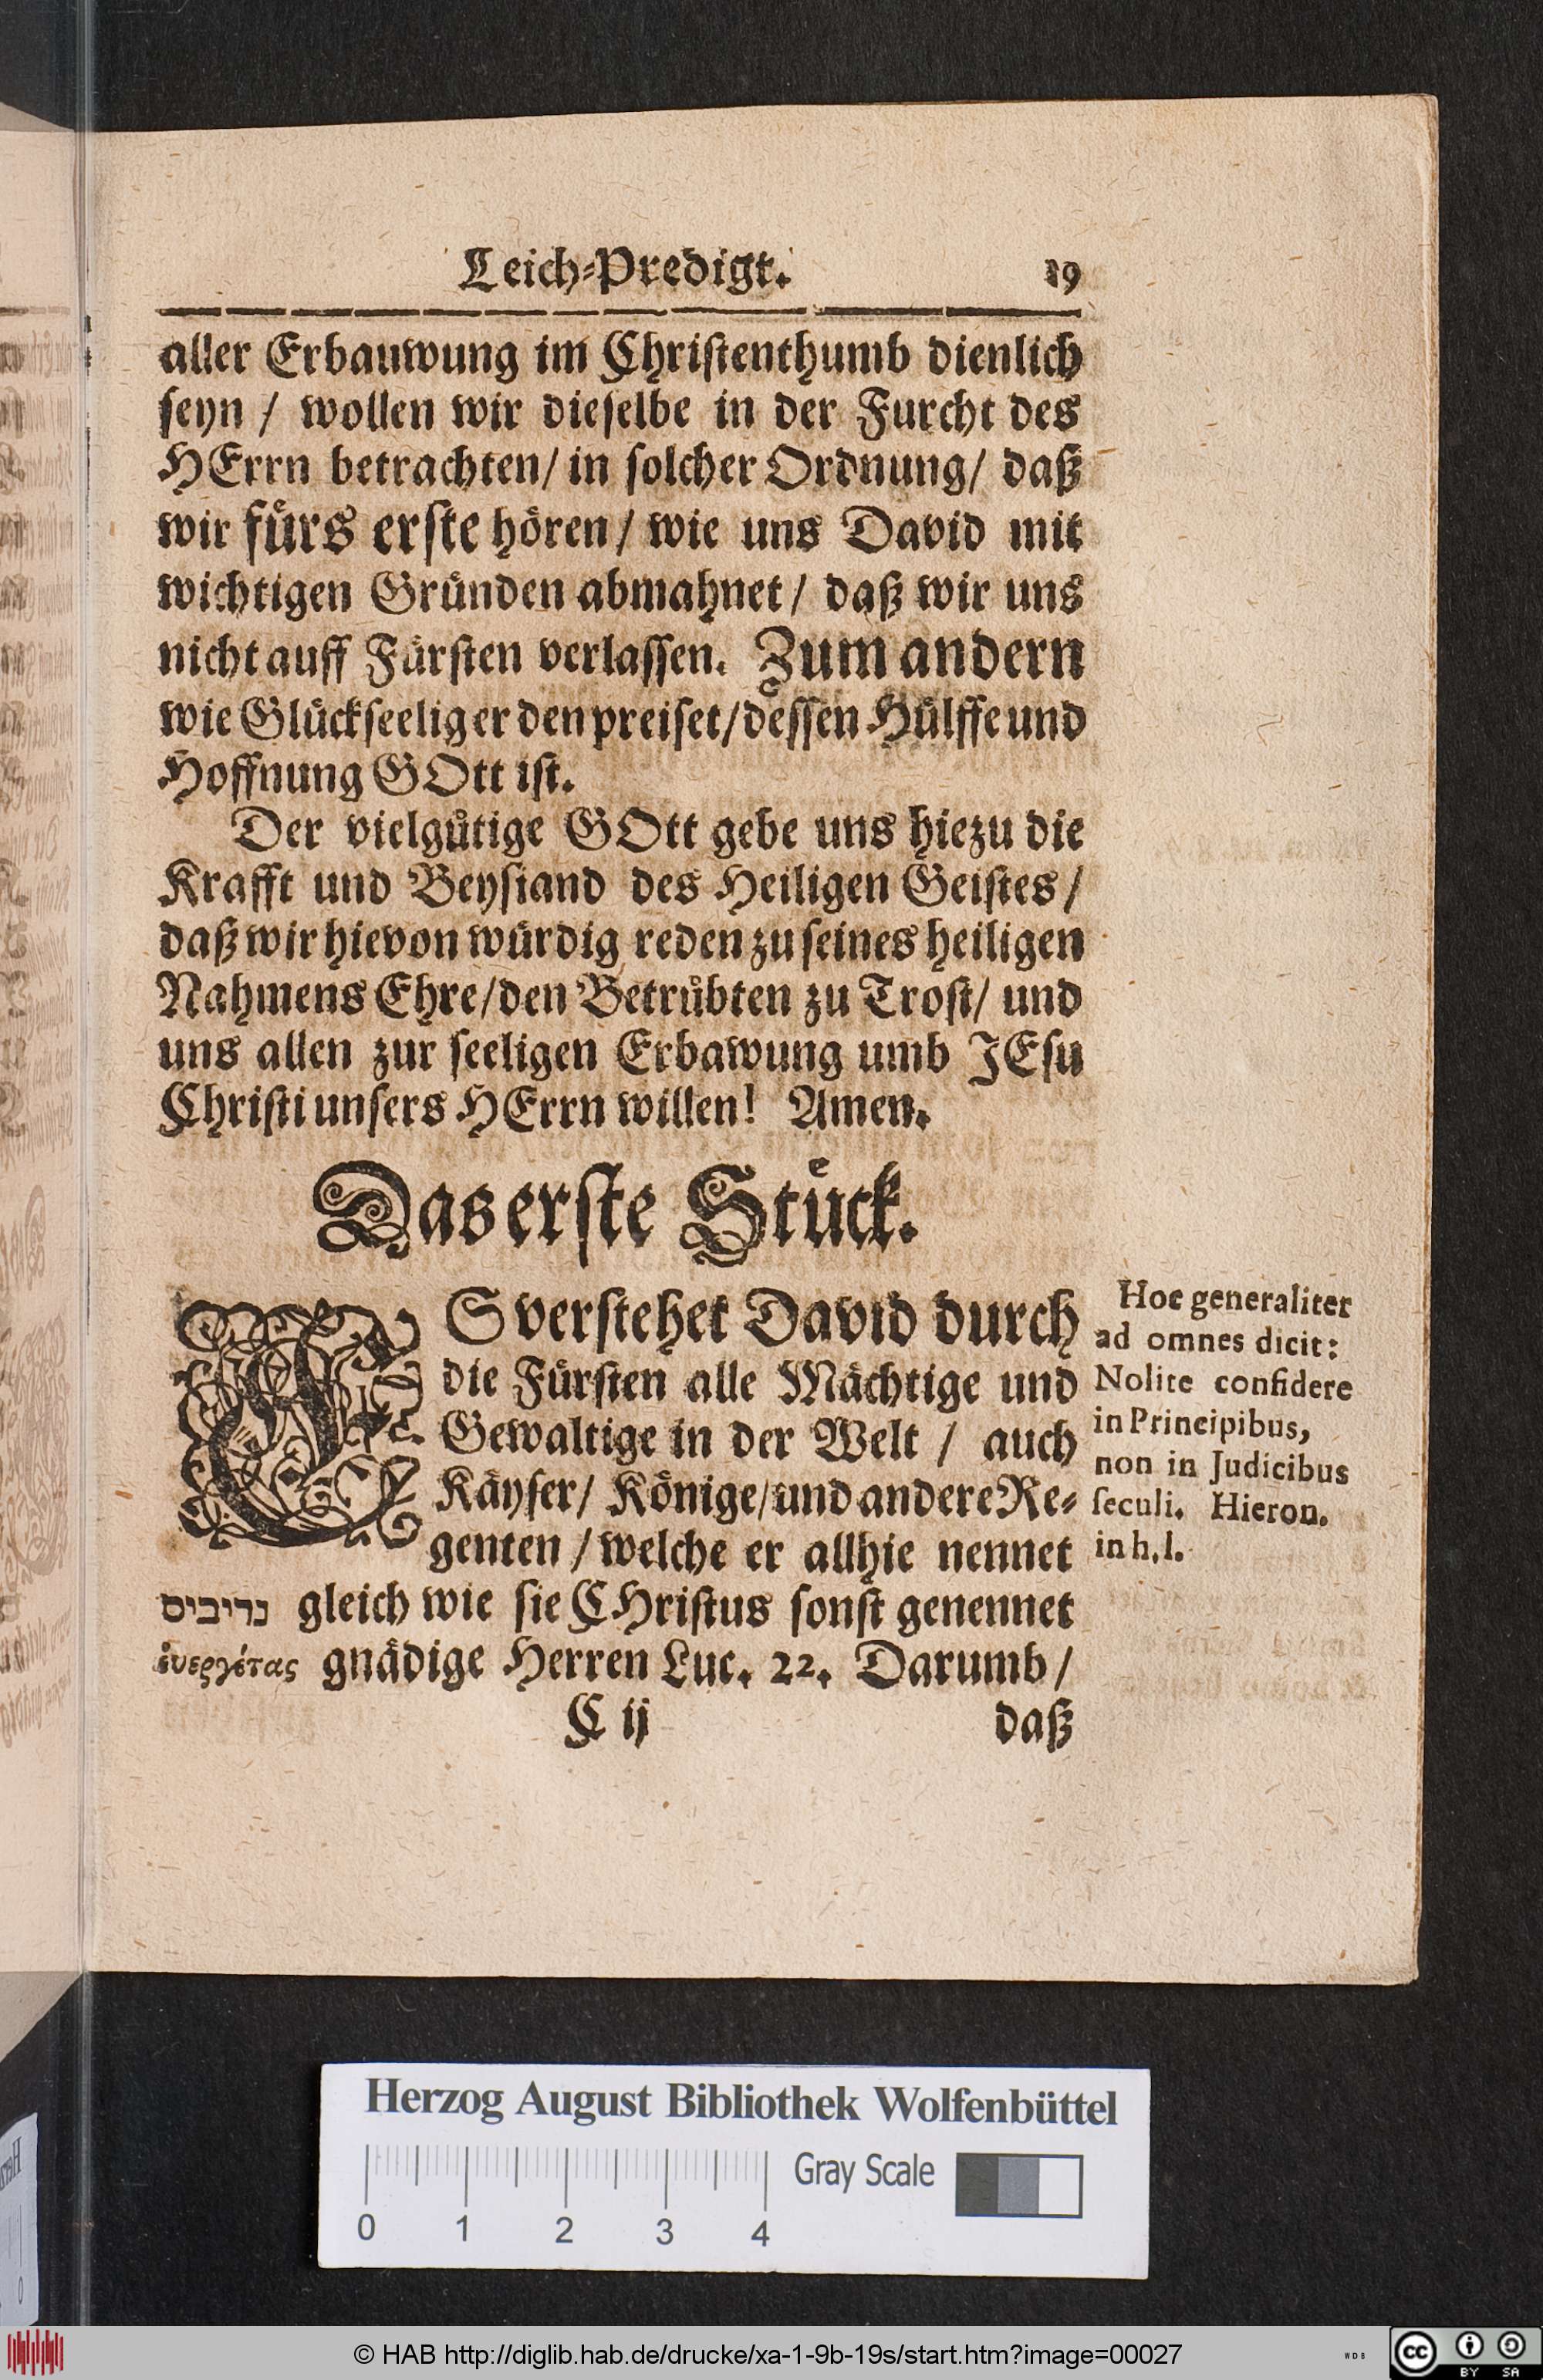 Leich-Predigt. 19
aller Erbauwung im Christenthumb dienlich
seyn / wollen wir dieselbe in der Furcht des
HErrn betrachten/ in solcher Ordnung/ daß
wir fürs erste hören / wie uns David mit
wichtigen Gründen abmahnet / daß wir uns
nicht auff Fürsten verlassen. Zum andern
wie Glückseelig er den preiset/dessen Hülffe und
Hoffnung GOtt ist.
Der vielgütige GOtt gebe uns hiezu die
Krafft und Beystand des Heiligen Geistes /
daß wir hievon würdig reden zu seines heiligen
Nahmens Ehre/den Betrübten zu Trost/ und
uns allen zur seeligen Erbawung umb JEsu
Christi unsers HErrn willen! Amen.
Das erste Stück.
ES verstehet David durch
die Fürsten alle Mächtige und
Gewaltige in der Welt / auch
Käyser/ Könige/und andere Re-
genten / welche er allhie nennet
נריבים gleich wie sie CHristus sonst genennet
ἐυεργέτας gnädige Herren Luc. 22. Darumb /
C ij daß
Hoc generaliter
ad omnes dicit:
Nolite confidere
in Principibus,
non in Judicibus
seculi. Hieron.
in h. l.
Herzog August Bibliothek Wolfenbüttel
Gray Scale
0 1 2 3 4
© HAB http://diglib.hab.de/drucke/xa-1-9b-19s/start.htm?image=00027
WDB
cc BY SA